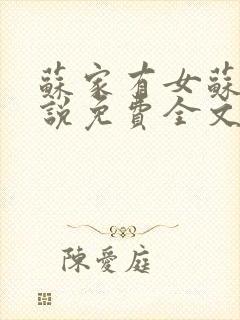 蘇家有女蘇
說免費全文
陳愛庭